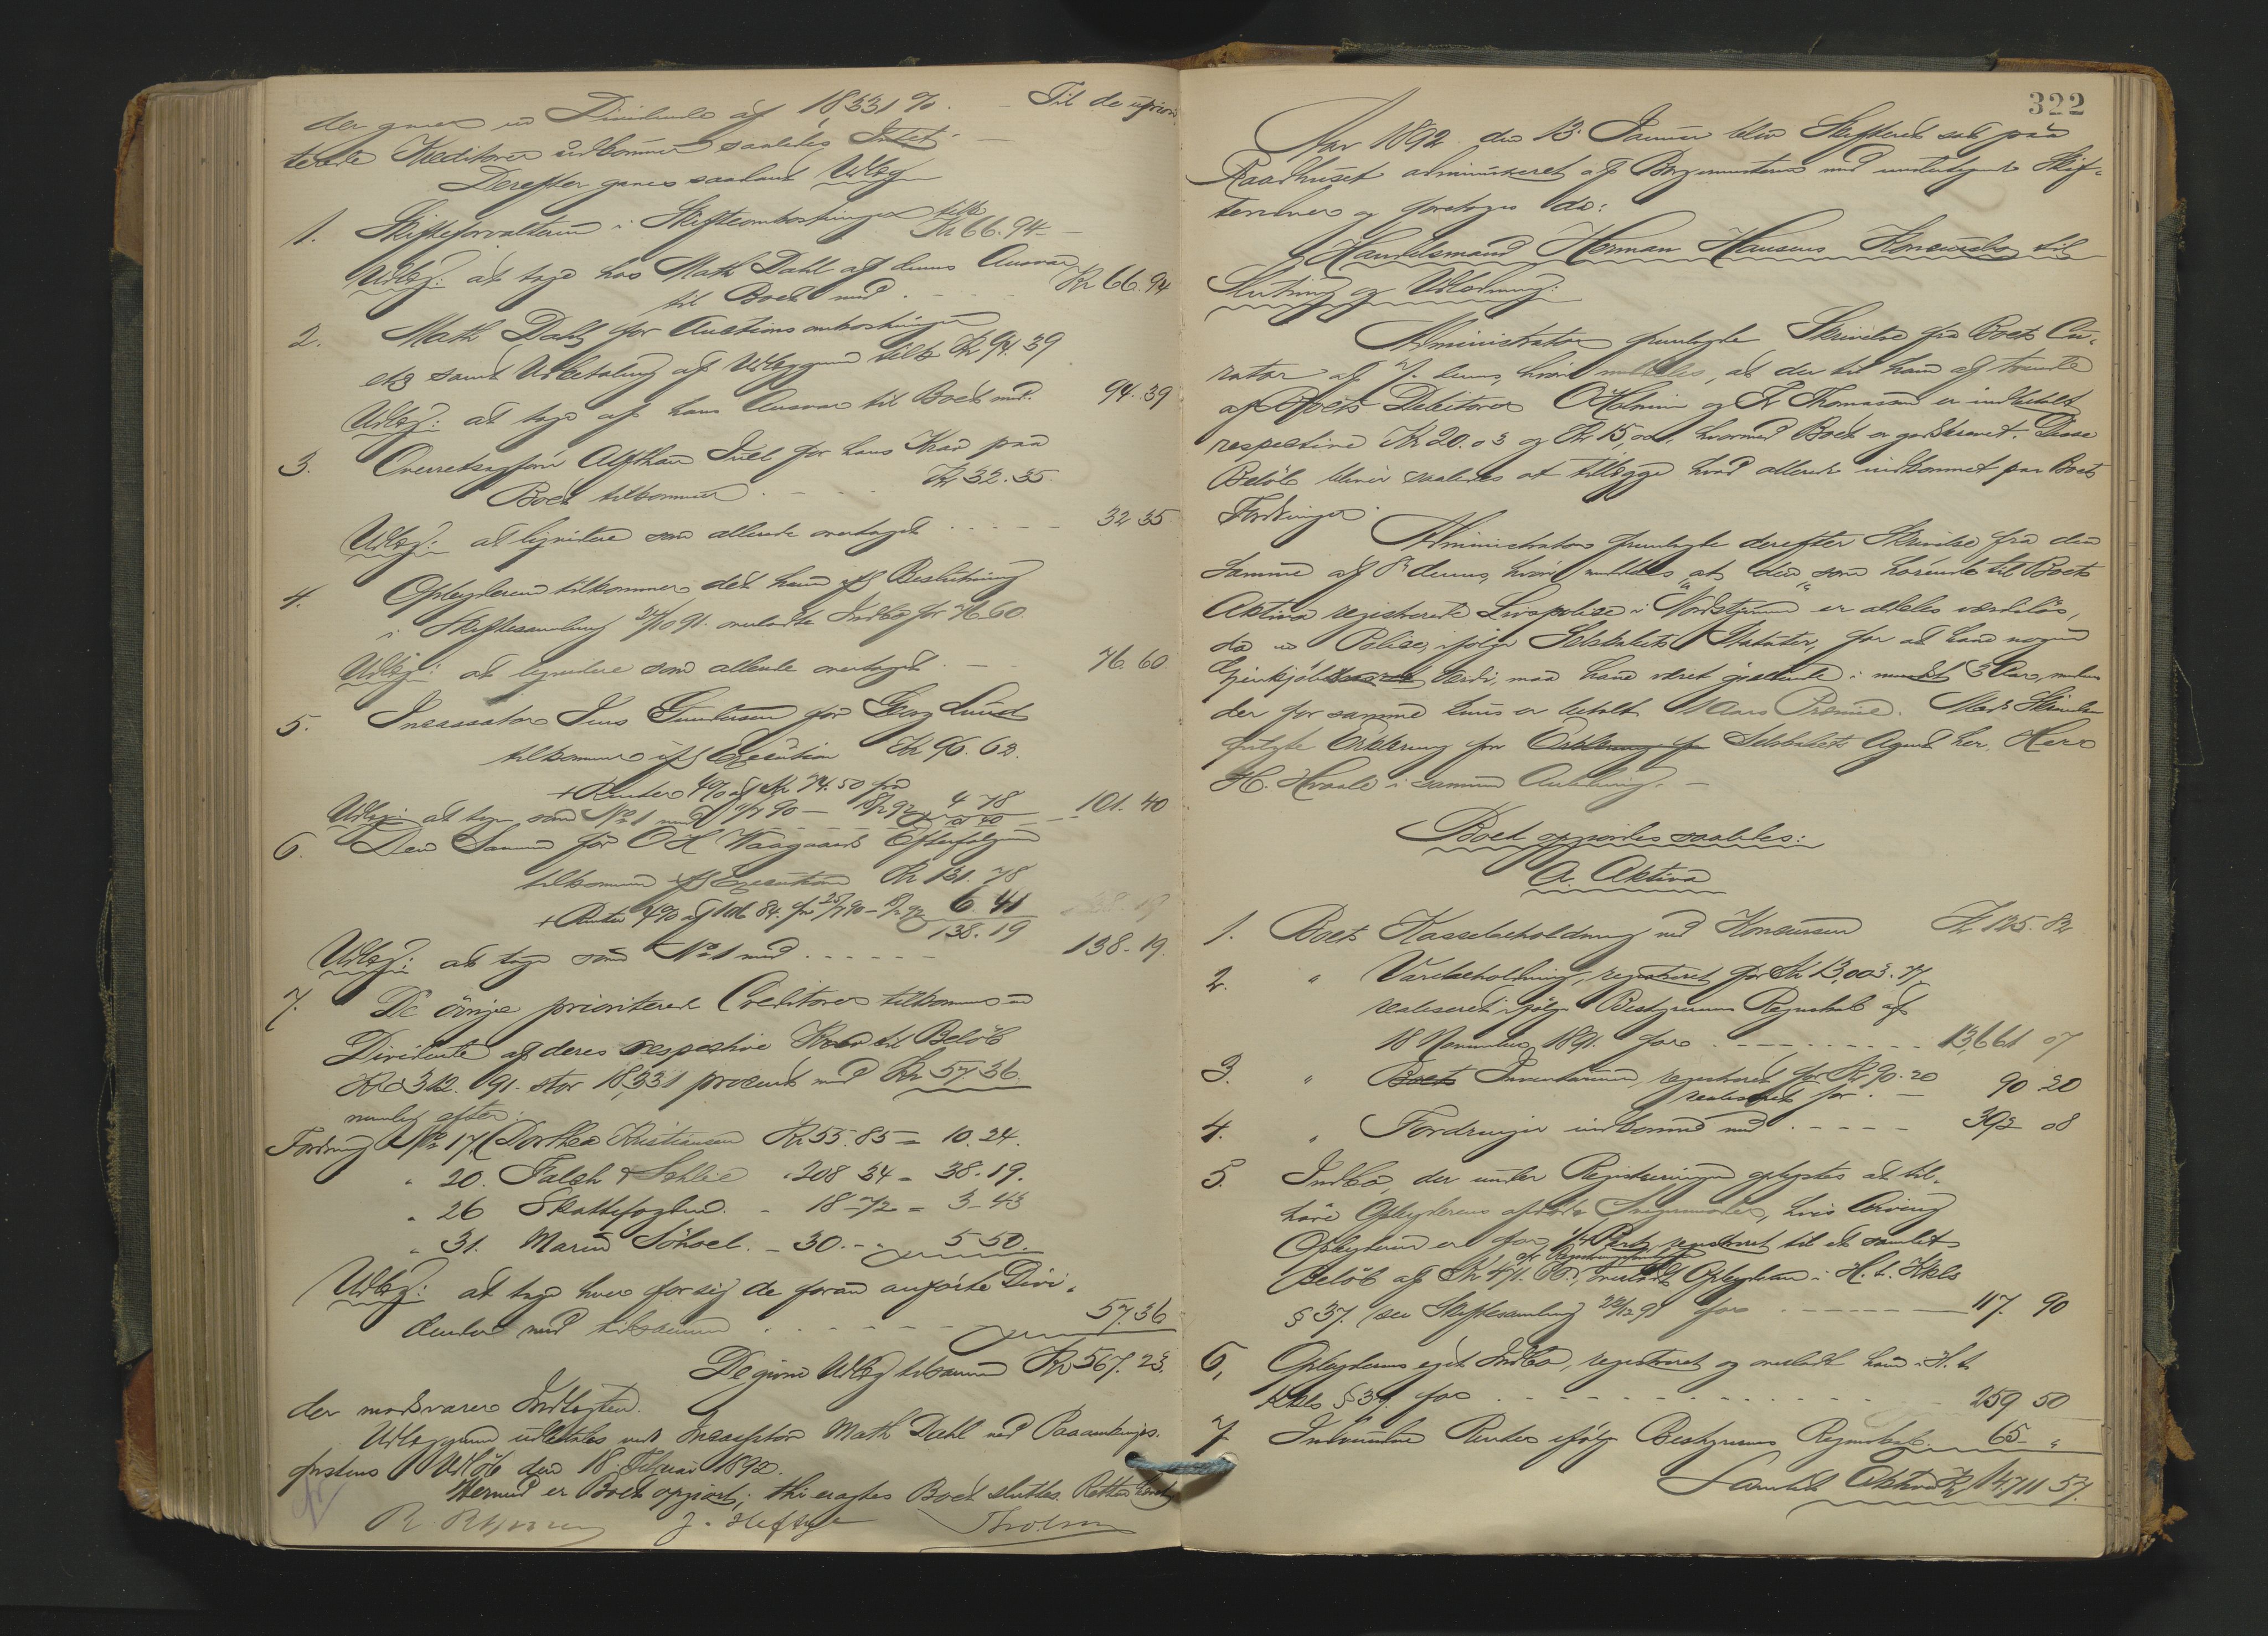 der gives en Dividende af 18,331 %. – Til de upriori-
terede Kreditorer udkommer saaledes Intet. –
Derefter gives saadant Udlæg
1. Skifteforvalteren i Skifteomkostninger tilk.
Kr 66.94 –
Udlæg: at tage hos Math Dahl af dennes Ansvar
til Boet med . . . Kr 66.94
2. Math Dahl for Auctionsomkostninger
etc samt Udbetaling af Udlæggene tilk. Kr 94.39
Udlæg: at tage af hans Ansvar til Boet med. 94.39
3. Overretssagfører Alfthan Juell for hans Krav paa
Boet tilkommer . – – Kr 32.35.
Udlæg: at liquidere som allerede overtaget . . . . . 32 35
4. Opbyderen tilkommer det ham iflg Beslutning
i Skiftesamling 24/10 91. overladte Indbo for 76.60.
Udlæg: at liquidere som allerede overtaget . – 76.60.
5. Incassator Jens Gundersen for Georg Lund
tilkommer iflg Execution Kr 96.62.
+ Renter 4% af Kr 74.50 fra
90 – 18/2 92 4 78
Udlæg: at tage som No 1 med 101.40
6. Den Samme for O H Waagaards Efterfølger
tilkommer iflg Execution Kr 131.78
+ Renter 4% af 106.84. fra 90 – 18/2 92 6 41
138.19
Udlæg: at tage som No 1 med . . . . . . 138.19.
7. De øvrige prioriterede Creditorer tilkommer en
Dividende af deres respective Krav til Beløb
Kr 312.91. stor 18,331 procent med Kr 57.36
nemlig efter:
Fordring No 17. (Dorthea Kristiansen Kr 55.85 = 10.24.
" 20. Falch & Schlie " 208 34 = 38.19.
" 26 Skattefogden. – 18 – 72 = 3 – 43
" 31. Maren Söhoel. – 30. – " 5 50.
Udlæg: at tage hver for sig de foran anførte Divi-
dender med tilsammen . . . . . 57.36
De givne Udlæg tilsammen Kr 567.23.
der modsvarer Indtægten.
Udlæggene udbetales ved Incassator Math Dahl ved Paaanknings-
fristens Udløb den 18. Februar 1892.
Hermed er Boet opgjort; thi eragtes Boet sluttet. Retten hævet
J. Heftye
322
Aar 1892 den 13. Januar blev Skifteret sat paa
Raadhuset administreret af Borgermesteren med undertegnede Skif-
teskriver og foretoges da:
Handelsmand Herman Hansens Konkursbo til
Slutning og Udlodning:
Administrator fremlagde Skrivelse fra Boets Cu-
rator af 7. dennes, hvori meddeles, at der til ham af tvende
af Boets Debitorer O Holmin og Fr Thomassen er indbetalt
respective Kr 20.03 og Kr 15,00, hvormed Boet er godskrevet. Disse
Beløb bliver saaledes at tillægge hvad allerede indkommet paa Boets
Fordringer.
Administrator fremlagde derefter Skrivelse fra den
Samme af 8 dennes, hvori meddeles, at den som hørende til Boets
Aktiva registrerede Livspolise i "Nordstjernen" er aldeles værdiløs,
da en Polise, ifølge Selskabets Statuter, for at have nogen
Gjenkjøbs Værdi, maa have været gjældende i mindst 3 Aar, medens
der for samme kuns er betalt 1 Aars Præmie. Med Skrivelsen
fulgte Erklæring fra Selskabets Agent her, Herr
H. Hvaale i samme Anledning. –
Boet opgjordes saaledes:
A. Aktiva
1. Boets Kassebeholdning ved Konkursen Kr 125.82
2. " Varebeholdning, registreret for Kr 13,003.71
realiseret ifølge Bestyrerens Regnskab af
18 November 1891. for . . . . . . . 13,661 07
3. " Boets Inventarium, registreret for Kr 90.20
realiseret for . – 90 20
4. " Fordringer indkommet med . . . . . 392 08
5. Indbo, der under Registreringen oplystes at til-
høre Opbyderens afdøde Svigermoder, hvis Arving
Opbyderen er for 1/4 Part, registreret til et samlet
Beløb af Kr 471.60, overladt Opbyderen i H. t. Kkls
§ 37. (se Skiftesamling 91 for . . . . . . 117. 90
6. Opbyderens eget Indbo, registreret og overladt ham i H. t.
Kkls § 37. for . . . . . . . . . 259 50
7. Indvundne Renter ifølge Bestyrerens Regnskab. 65 – "
Samlede Aktiva Kr 14711 57.